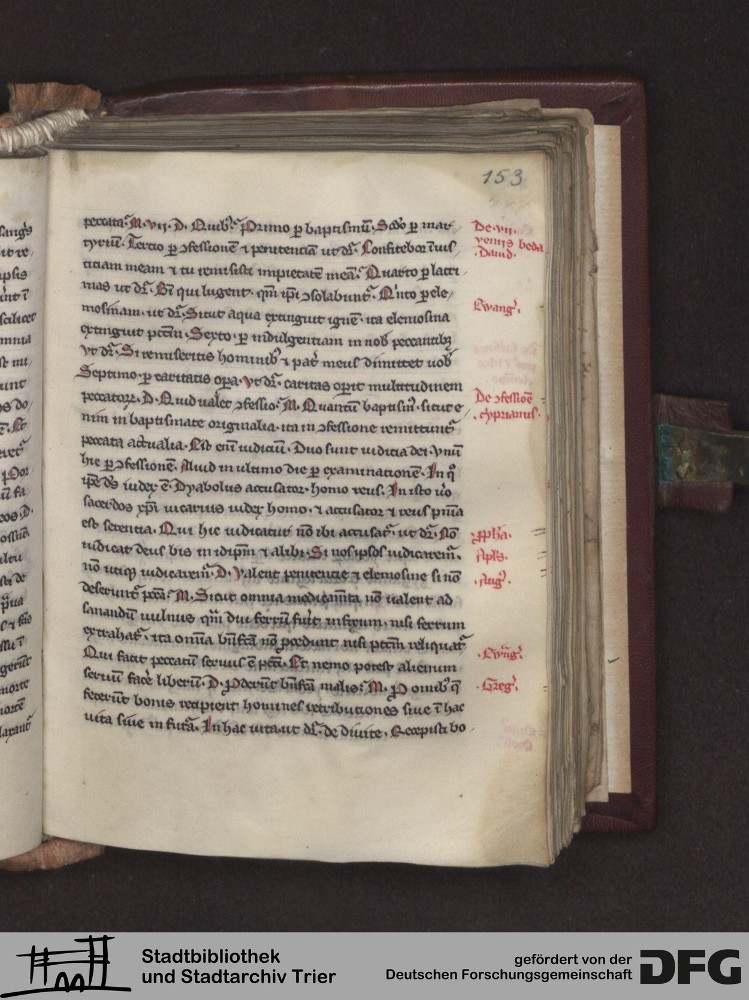 153
peccata. M. vij. D. Quibꝰ. Primo ꝑ baptismū. Scd̛o ꝑ mar
tyriū. Tercio ꝑ ↄfessionē ⁊ penitenciā ut dr̄. Confitebor
ticiam meam ⁊ tu remisisti impietatē meā. Quarto ꝑ lacri
mas ut dr̄. Bt̄i qui lugent. qm̄ ip̄i ↄsolabunt̛. Qⁱnto ꝑ ele
mosinam. ut dr̄. Sicut aqua extinguit ignē. ita elemosina
extinguit pctm̄. Sexto. ꝑ indulgentiam in nob̄ peccantibꝫ
Vt dr̄. Si remiseritis hominibꝫ ⁊ pat̛ meus dimittet uob̄
Septimo. ꝑ caritatis oꝑa. Vt dr̄. caritas oꝑit multitudinem
peccatoꝝ. D. Quid ualet ↄfessio. M. Quantū baptism̄. sicut e
nim in baptismate originalia. ita in ↄfessione remittunt̛
peccata actualia. Est enī iudiciū. Duo sunt iudicia dei. Vnū
hic ꝑ ↄfessionē. Aliud in ultimo die ꝑ examinationē. In qͦ
ip̄e ds̄ iudex ē. Dyabolus accusator. homo reus. In isto uͦ
sacerdos xp̄i uicarius iudex homo. ⁊ accusator ⁊ reus pn̄ia
est sentencia. Qui hic iudicatur nō ibi accusat̛. ut dr̄. Nō
iudicat deus bis in idip̄m ⁊ alibi. Si nosipsos iudicarem̛.
nō utiqꝫ iudicarem̛. D. Valent penitencie ⁊ elemosine si nō
deserunt̛ pctā. M. Sicut omnia medicam̄ta nō ualent ad
sanandū uulnus qm̄ diu ferrū fưit infixum. nisi ferrum
extrahat̛. ita om̄ia bn̄fc̄a nō ꝓcedunt nisi pctm̄ reliquat̛
Qui facit peccatū seruus ē pctī. Et nemo potest alienum
seruū face̛ liberū. D. Ꝓderūt bn̄fc̄a malis. M. Ꝓ om̄ibꝰ q̄
fecerūt bonis recipient homines retributiones siue ī hac
uita siue in fut̛a. In hac uita. ut dr̄. de diuite. Recepisti bo
De .vij.
remis beda
Dauid.
Ewang̛.
De ↄfessiōe
cyprianus.
ꝓph̄a.
Apl̄s.
Aug̛.
Ewāg̛.
Greg̛.
Stadtbibliothek
und Stadtarchiv Trier
gefördert von der
Deutschen Forschungsgemeinschaft
DFG